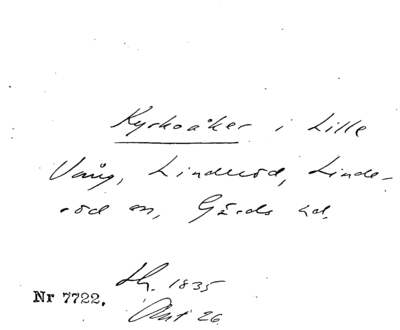 Kyrkoåker i Lille
Vång, Linderöd, Linde-
röd sn, Gärds hd.
Nr 7722. 1835
26